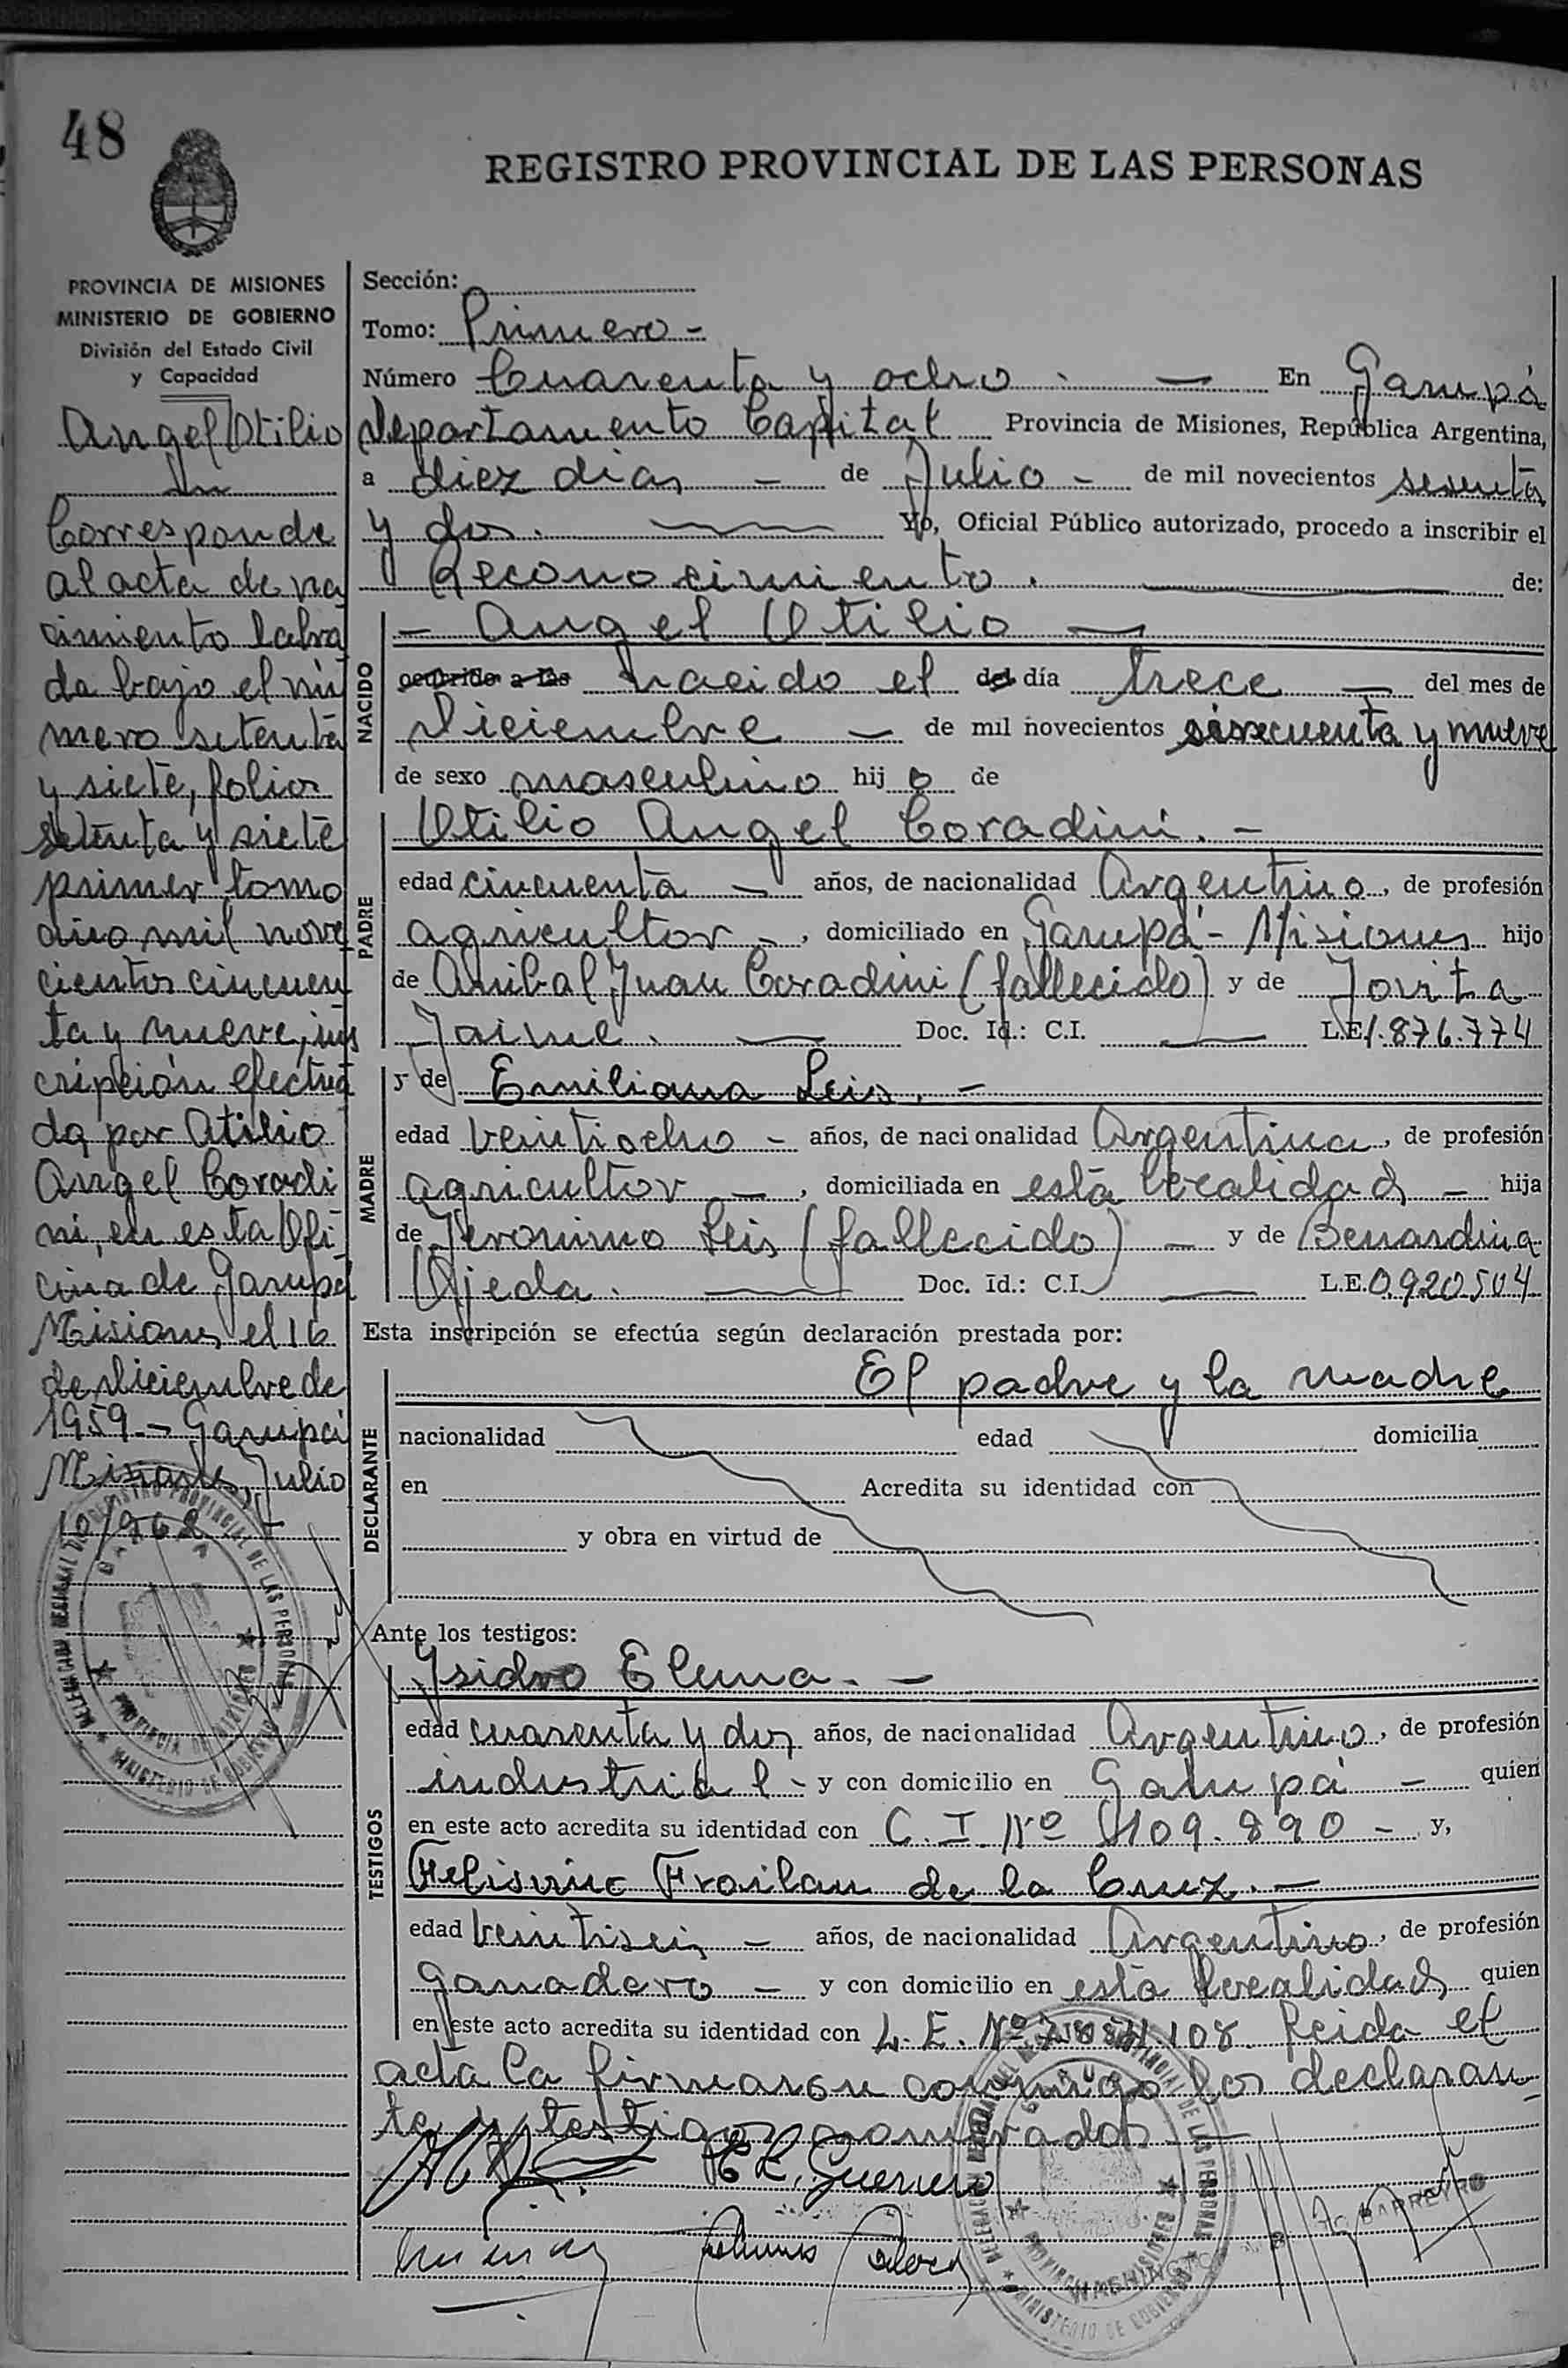 48
REGISTRO PROVINCIAL DE LAS PERSONAS
PROVINCIA DE MISIONES
MINISTERIO DE GOBIERNO
División del Estado Civil
y Capacidad
Angel Otilio
Corresponde
al acta de na
cimiento labra
da bajo el nú
mero setenta
y siete, folios
setenta y siete
primer tomo
año mil nove
cientos cincuen
ta y nueve, ins
cripción efectua
da por Otilio
Angel Coradi
ni, en esta Ofi
cina de Garupá
Misiones el 16
de diciembre de
1959.- Garupá
Misiones, Julio
10/962
Sección:
Tomo: Primero -
Número Cuarenta y ocho . — En Garupá
Departamento Capital Provincia de Misiones, República Argentina,
a diez días - de Julio - de mil novecientos sesenta
y dos. Yo, Oficial Público autorizado, procedo a inscribir el
Reconocimiento . de:
NACIDO
- Angel Otilio —
ocurrido a las nacido el del día trece — del mes de
Diciembre — de mil novecientos cincuenta y nueve
de sexo masculino hijo de
PADRE
Otilio Angel Coradini. -
edad cincuenta — años, de nacionalidad Argentino, de profesión
agricultor -, domiciliado en Garupá - Misiones hijo
de Anibal Juan Coradini (fallecido) y de Jovita
Jaime. — Doc. Id.: C.I. — L.E. 1.876.774
MADRE
y de Emiliana Leis. -
edad veintiocho - años, de nacionalidad Argentina, de profesión
agricultor -, domiciliada en esta localidad - hija
de Jeronimo Leis (fallecido) - y de Benardina
Ojeda. — Doc. Id.: C.I. — L.E. 0.920.504
Esta inscripción se efectúa según declaración prestada por:
DECLARANTE
El padre y la madre
nacionalidad edad domicilia
en Acredita su identidad con
y obra en virtud de
Ante los testigos:
TESTIGOS
Ysidro Elena. -
edad cuarenta y dos años, de nacionalidad Argentino, de profesión
industrial - y con domicilio en Garupá - quien
en este acto acredita su identidad con C. I. Nº 109.890 - y,
Felisino Froilan de la Cruz. -
edad veintiseis - años, de nacionalidad Argentino, de profesión
ganadero - y con domicilio en esta localidad quien
en este acto acredita su identidad con L. E. Nº 108. Leida el
acta la firmaron conmigo los declaran
te y testigos nombrados
Guerrero
DELEGACION REGIONAL DEL REGISTRO PROVINCIAL DE LAS PERSONAS
GARUPA
PROVINCIA DE MISIONES
MINISTERIO DE GOBIERNO
BARREYRO